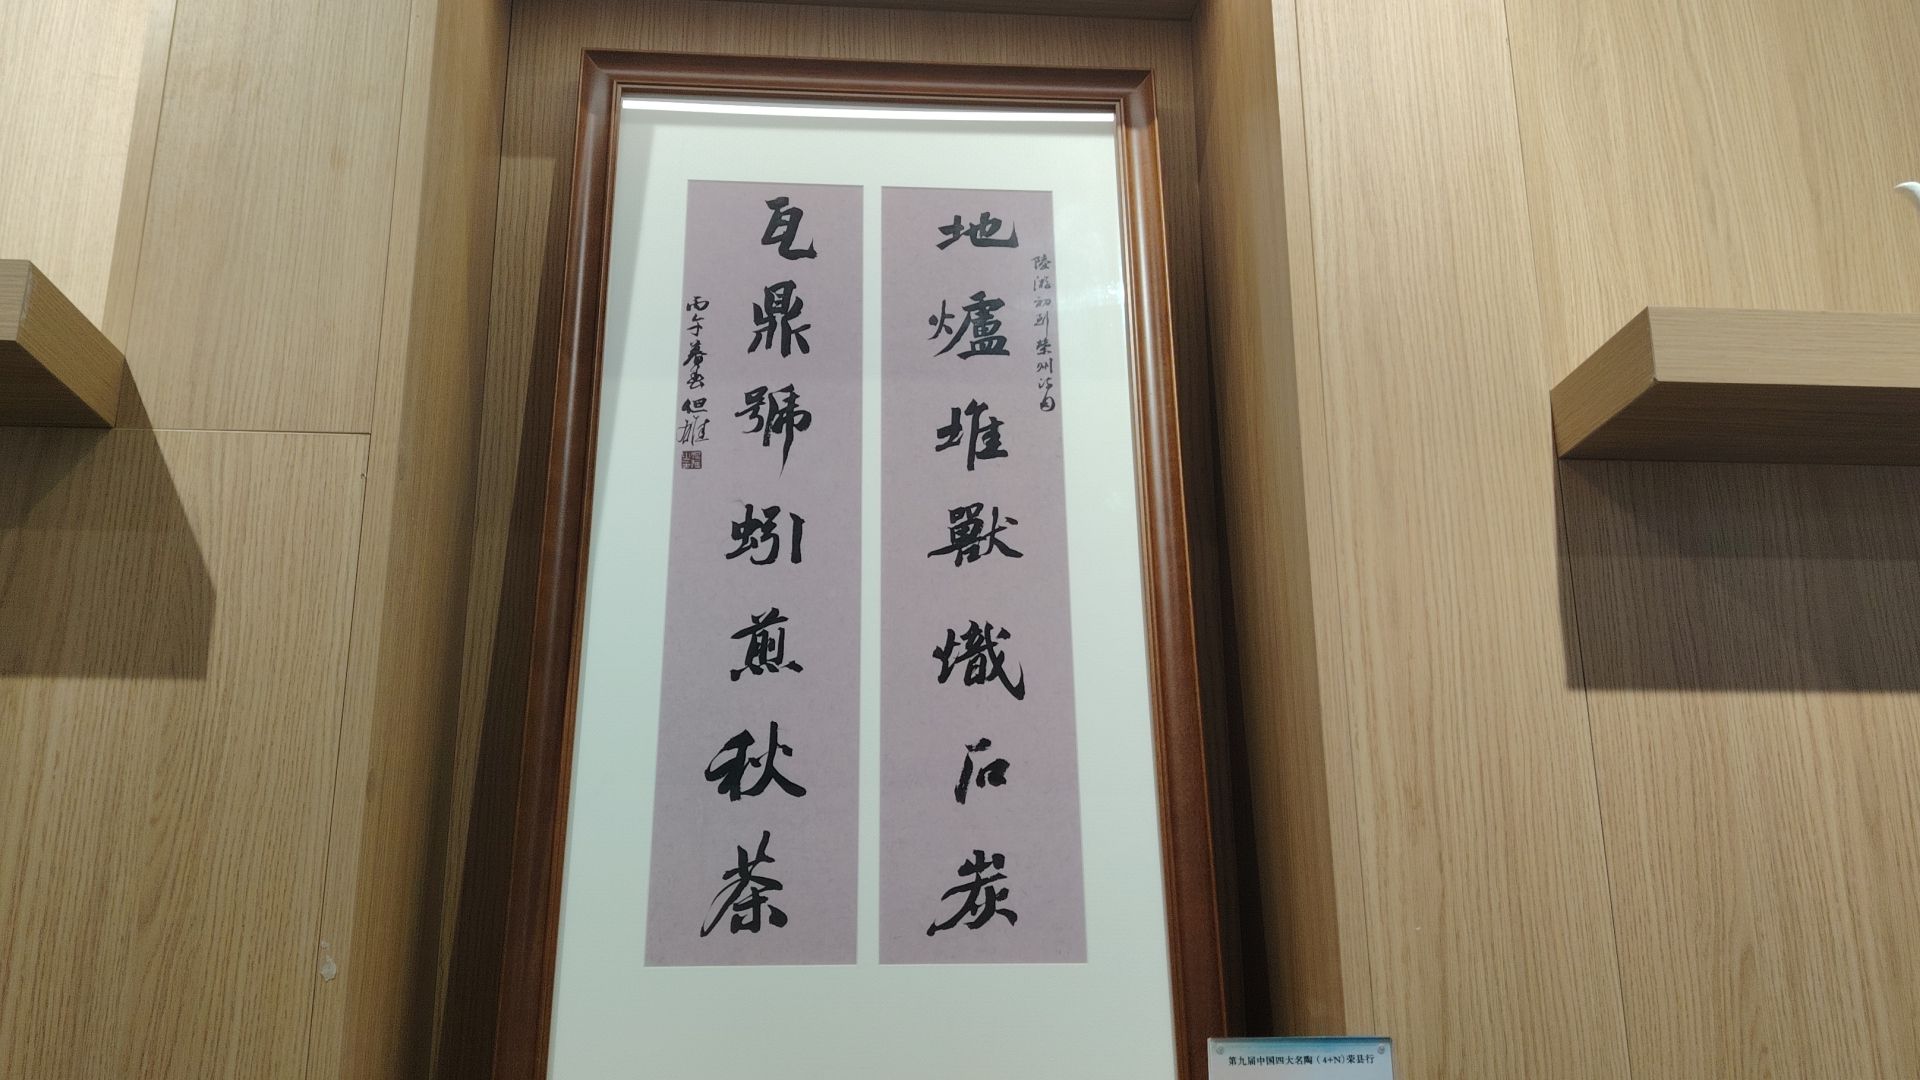 陸游初到榮州詩句
地爐堆獸熾石炭
瓦鼎號蚓煎秋茶
丙午春書但雄
第九届中国四大名陶（4+N）荣县行